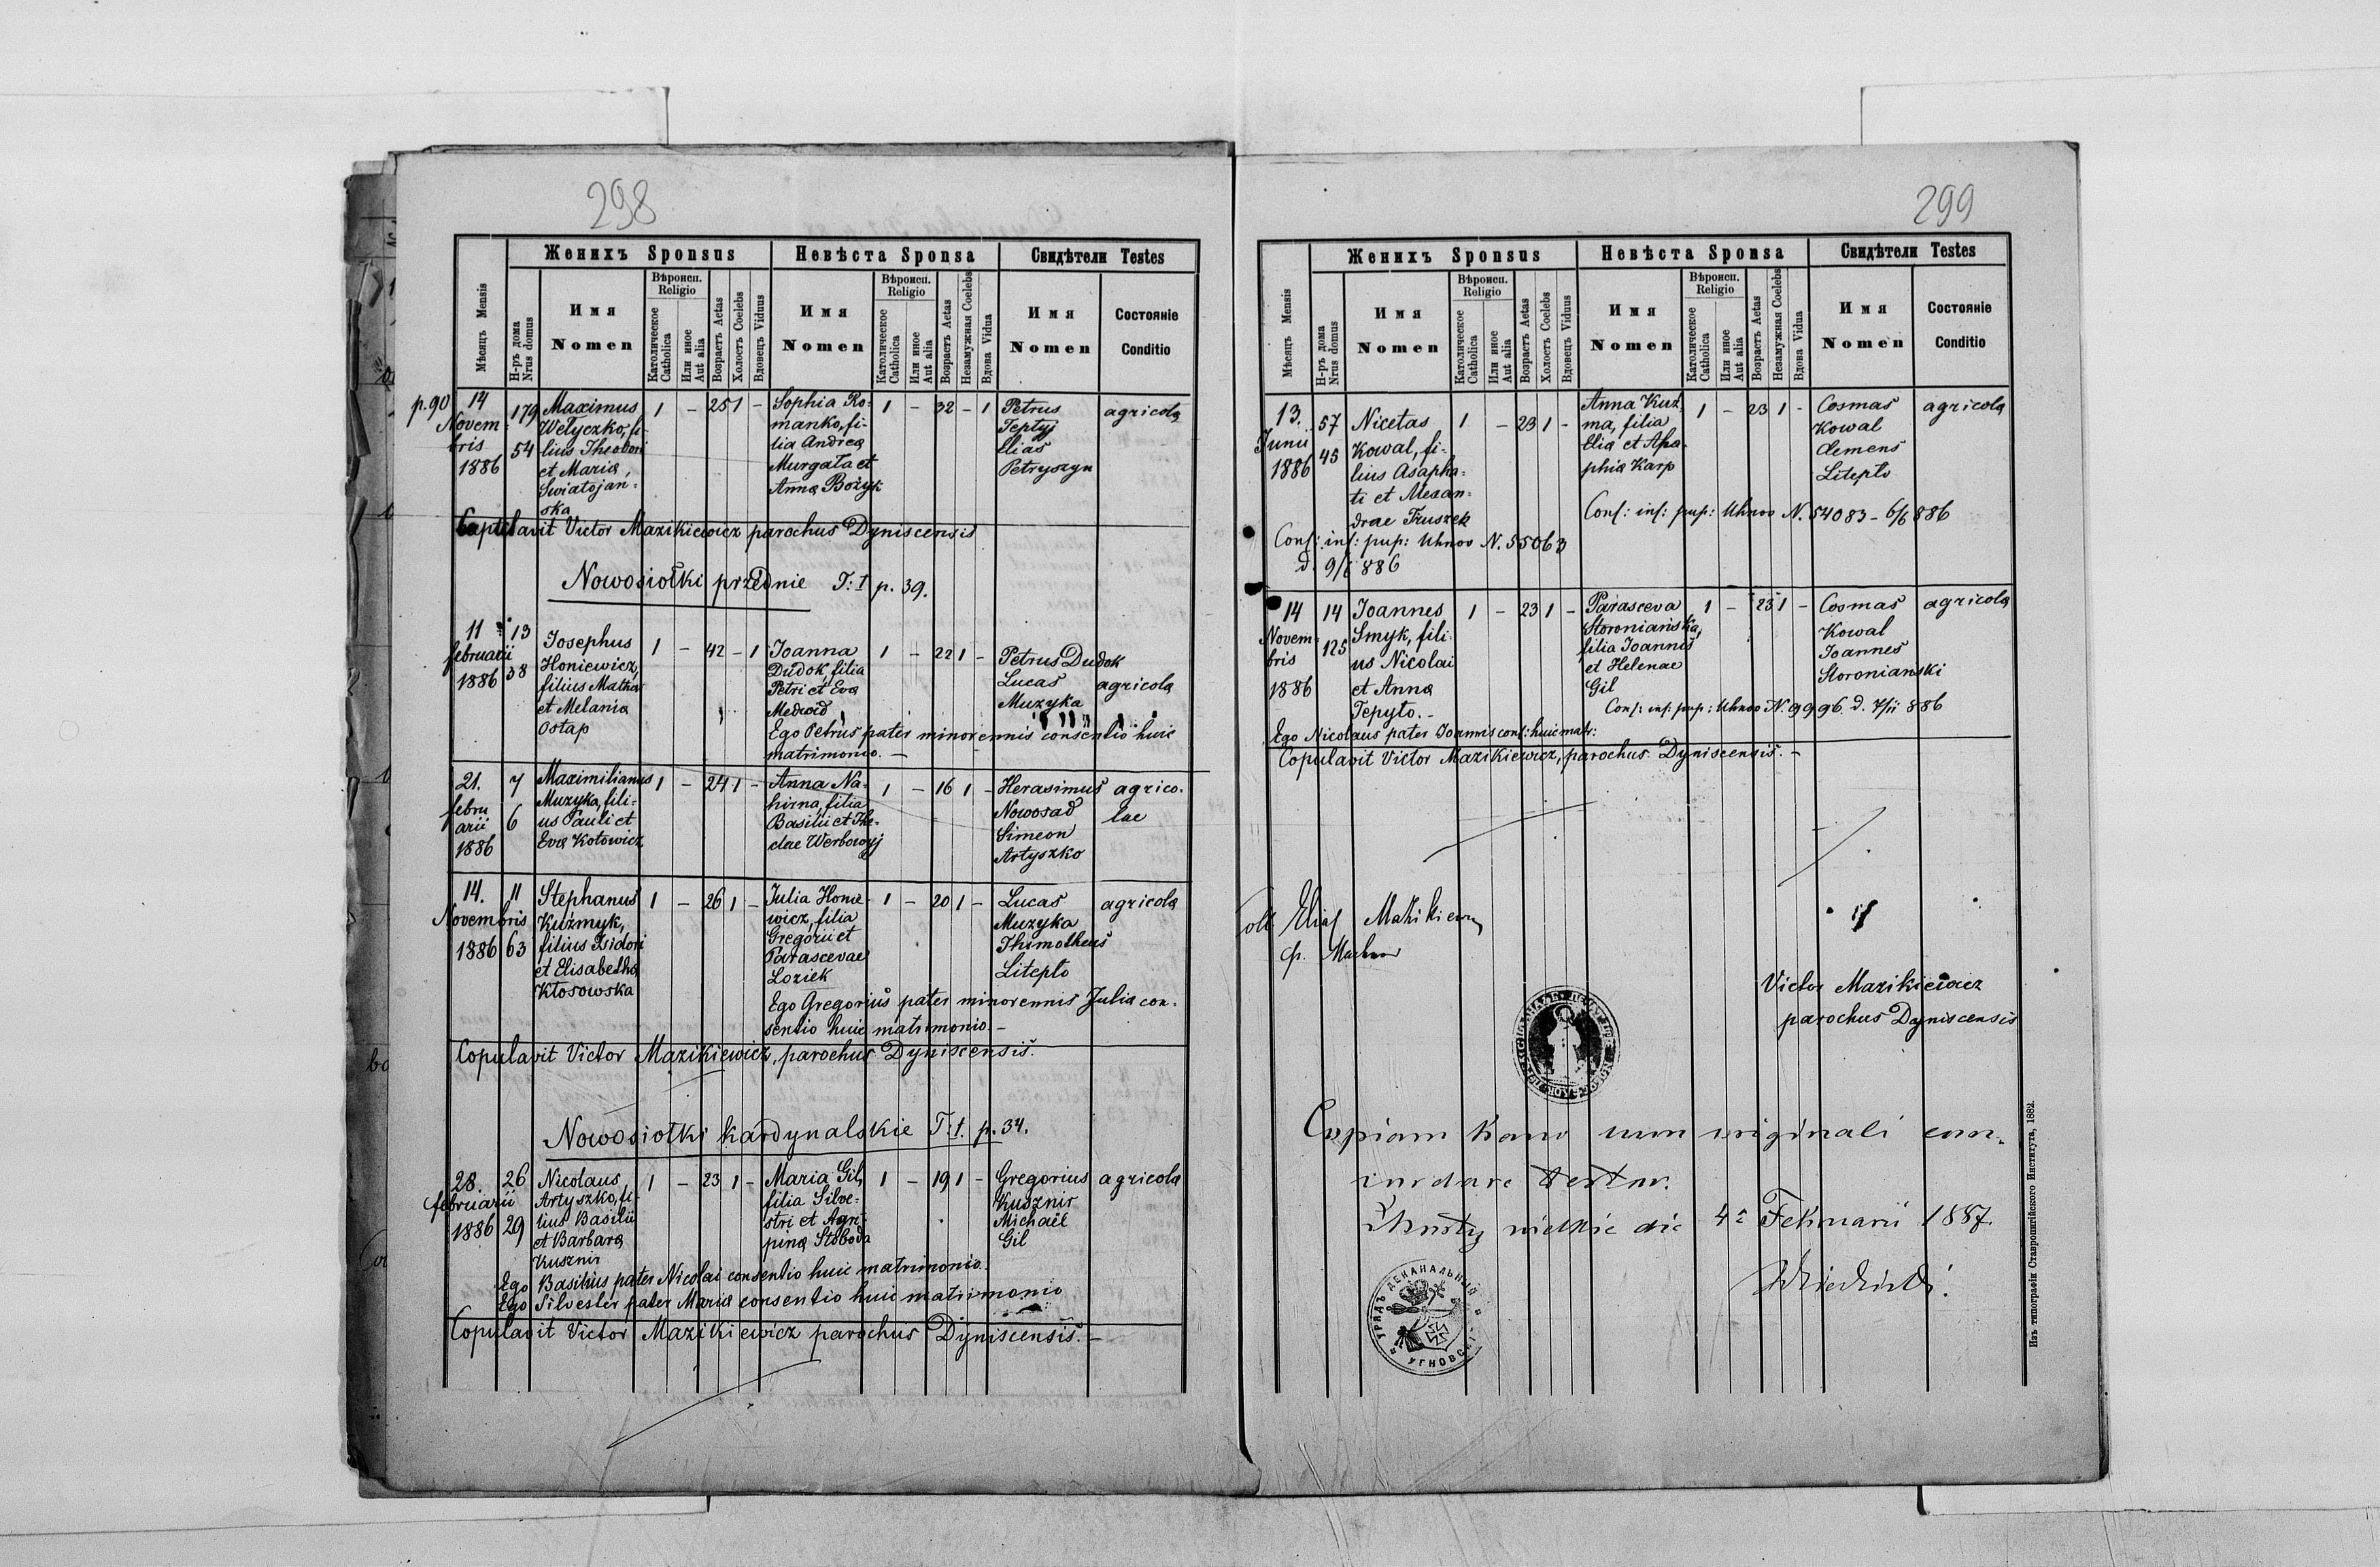 298
Женихъ Sponsus
Невѣста Sponsa
Свидѣтели Testes
Мѣсяцъ Mensis
Н-ръ дома Nrus domus
Имя Nomen
Вѣроисп. Religio
Католическое Catholica
Или иное Aut alia
Возрастъ Aetas
Холостъ Coelebs
Вдовецъ Viduus
Имя Nomen
Вѣроисп. Religio
Католическое Catholica
Или иное Aut alia
Возрастъ Aetas
Незамужная Coelebs
Вдова Vidua
Имя Nomen
Состояніе Conditio
p.90
14 Novembris 1886
179
54
Maximus
Wełyczko, fi-
lius Theodori
et Maria
Swiatojan-
ska
1 – 25 1 –
Sophia Ro-
manko, fi-
lia Andrea
Murgała et
Anna Bożyk
1 – 32 – 1
Petrus
Teptyj
Elias
Petryszyn
agricola
Copulavit Victor Mazikiewicz parochus Dyniscensis
Nowosiołki przednie T: I p. 39.
11 februarii 1886
13
38
Josephus
Honiewicz,
filius Mathei
et Melania
Ostap
1 – 42 – 1
Joanna
Dudok, filia
Petri et Eva
Medwid
1 – 22 1 –
Petrus Dudok
Lucas
Muzyka
agricola
Ego Petrus pater minorennis consentio huic
matrimonio. –
21. februarii 1886
7
6
Maximilianus
Muzyka, fili-
us Pauli et
Eva Kotowicz
1 – 24 1 –
Anna Na-
hirna, filia
Basilii et The-
clae Werbowyj
1 – 16 1 –
Herasimus
Nowosad
Simeon
Artyszko
agrico-
lae
14. Novembris 1886
11
63
Stephanus
Kuźmyk,
filius Isidori
et Elisabetha
Kłosowska
1 – 26 1 –
Julia Honie-
wicz, filia
Gregorii et
Parascevae
Loziek
1 – 20 1 –
Lucas
Muzyka
Thimotheus
Litepło
agricola
Ego Gregorius pater minorennis Julia con-
sentio huic matrimonio –
Copulavit Victor Mazikiewicz, parochus Dyniscensis.
Nowosiołki kardynalskie T: I. p. 34.
28. februarii 1886
26
29
Nicolaus
Artyszko, fi-
lius Basilii
et Barbara
Kusznir
1 – 23 1 –
Maria Gil,
filia Silve-
stri et Agri-
pina Słoboda
1 – 19 1 –
Gregorius
Kusznir
Michaël
Gil
agricola
Ego Basilius pater Nicolai consentio huic matrimonio.
Ego Silvester pater Maria consentio huic matrimonio
Copulavit Victor Mazikiewicz parochus Dyniscensis. –
299
Женихъ Sponsus
Невѣста Sponsa
Свидѣтели Testes
Мѣсяцъ Mensis
Н-ръ дома Nrus domus
Имя Nomen
Вѣроисп. Religio
Католическое Catholica
Или иное Aut alia
Возрастъ Aetas
Холостъ Coelebs
Вдовецъ Viduus
Имя Nomen
Вѣроисп. Religio
Католическое Catholica
Или иное Aut alia
Возрастъ Aetas
Незамужная Coelebs
Вдова Vidua
Имя Nomen
Состояніе Conditio
13. Junii 1886
57
45
Nicetas
Kowal, fi-
lius Asapha-
ti et Alexan-
drae Truszek
1 – 23 1 –
Anna Kuź-
ma, filia
Elia et Apa-
phia Karp
1 – 23 1 –
Cosmas
Kowal
Clemens
Litepło
agricola
Cons: inf: pup: Uhnow N. 54083 – 6/6 886
Cons: inf: pup: Uhnow N. 55063
d. 9/6 886
14 Novembris 1886
14
125
Joannes
Smyk, fili-
us Nicolai
et Anna
Tepyło. –
1 – 23 1 –
Parasceva
Storoniańska,
filia Joannis
et Helenae
Gil
1 – 23 1 –
Cosmas
Kowal
Joannes
Storonianski
agricola
Cons: inf: pup: Uhnow N. 9996. d. 7/11 886
Ego Nicolaus pater Joannis cons: huic matr:
Copulavit Victor Mazikiewicz, parochus Dyniscensis. –
Elias Mazikiewicz
Victor Mazikiewicz
parochus Dyniscensis
Copiam hanc cum originali con-
cordare testor.
die 4ª Februarii 1887.
УРЯДЪ ДЕКАНАЛЬНЫЙ УГНОВСКІЙ
Изъ типографіи Ставропигійского Института, 1882.